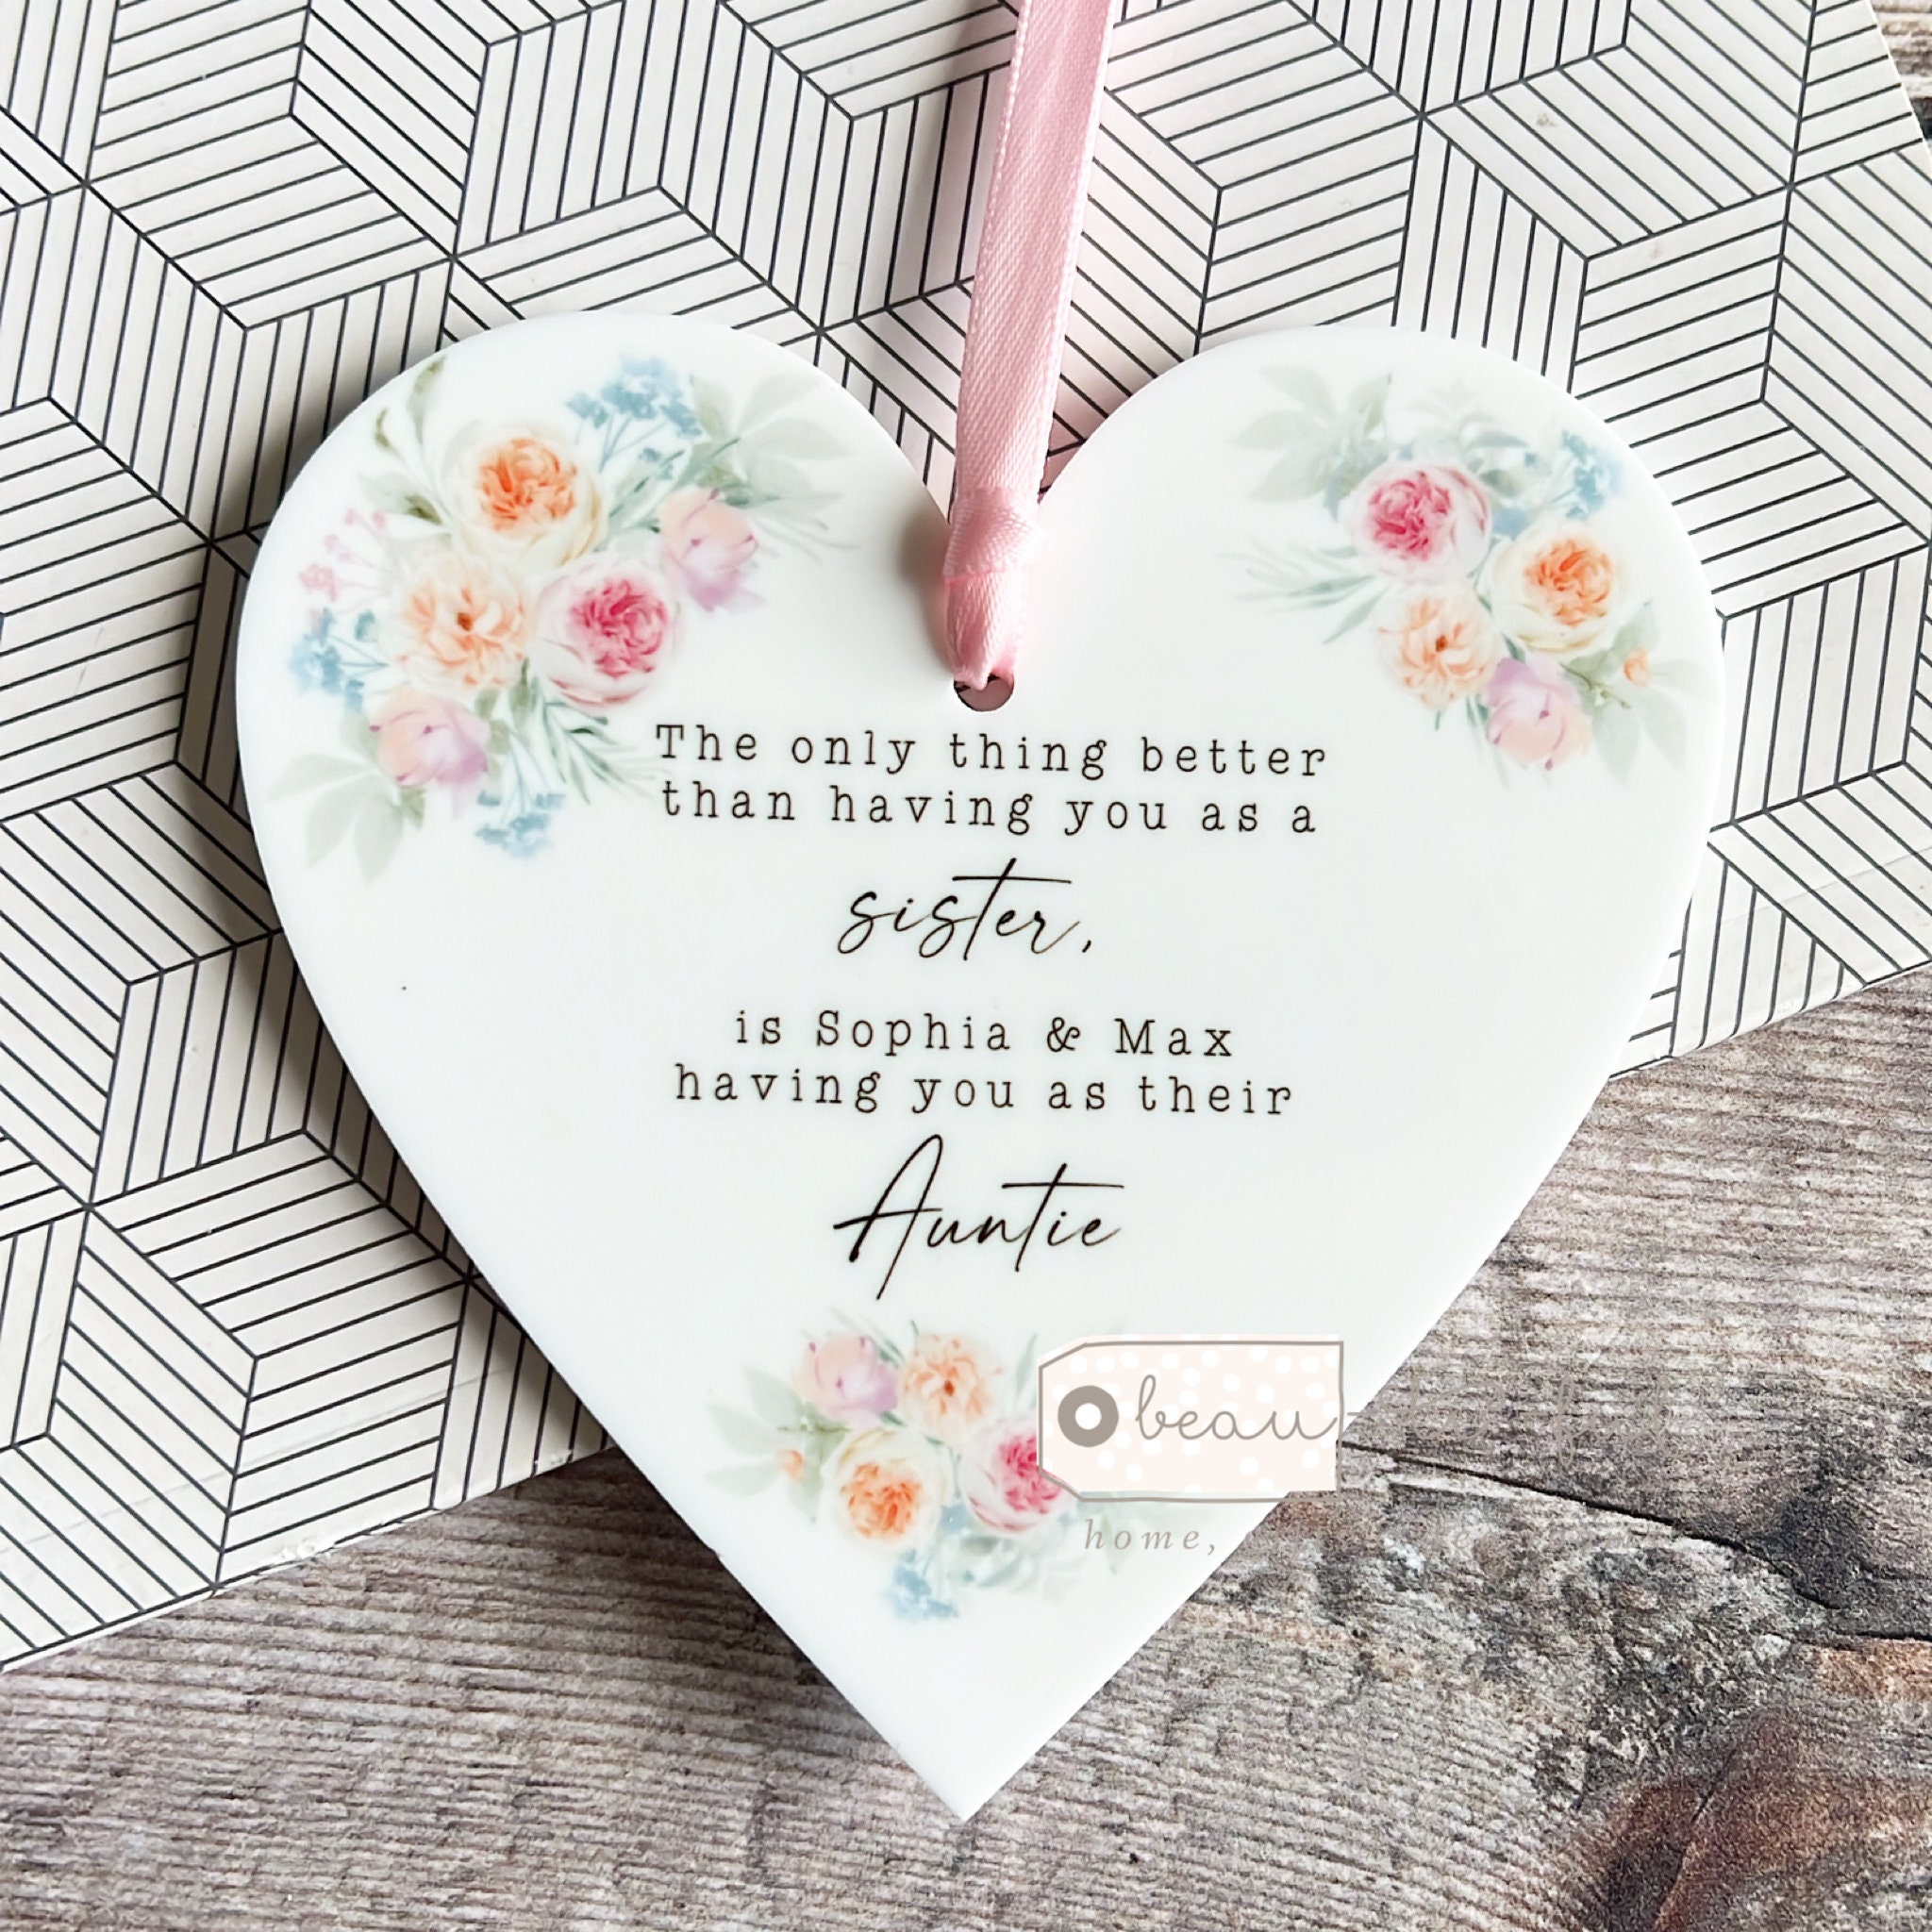 The only thing better
than having you as a
sister,
is Sophia & Max
having you as their
Auntie
beau
home,